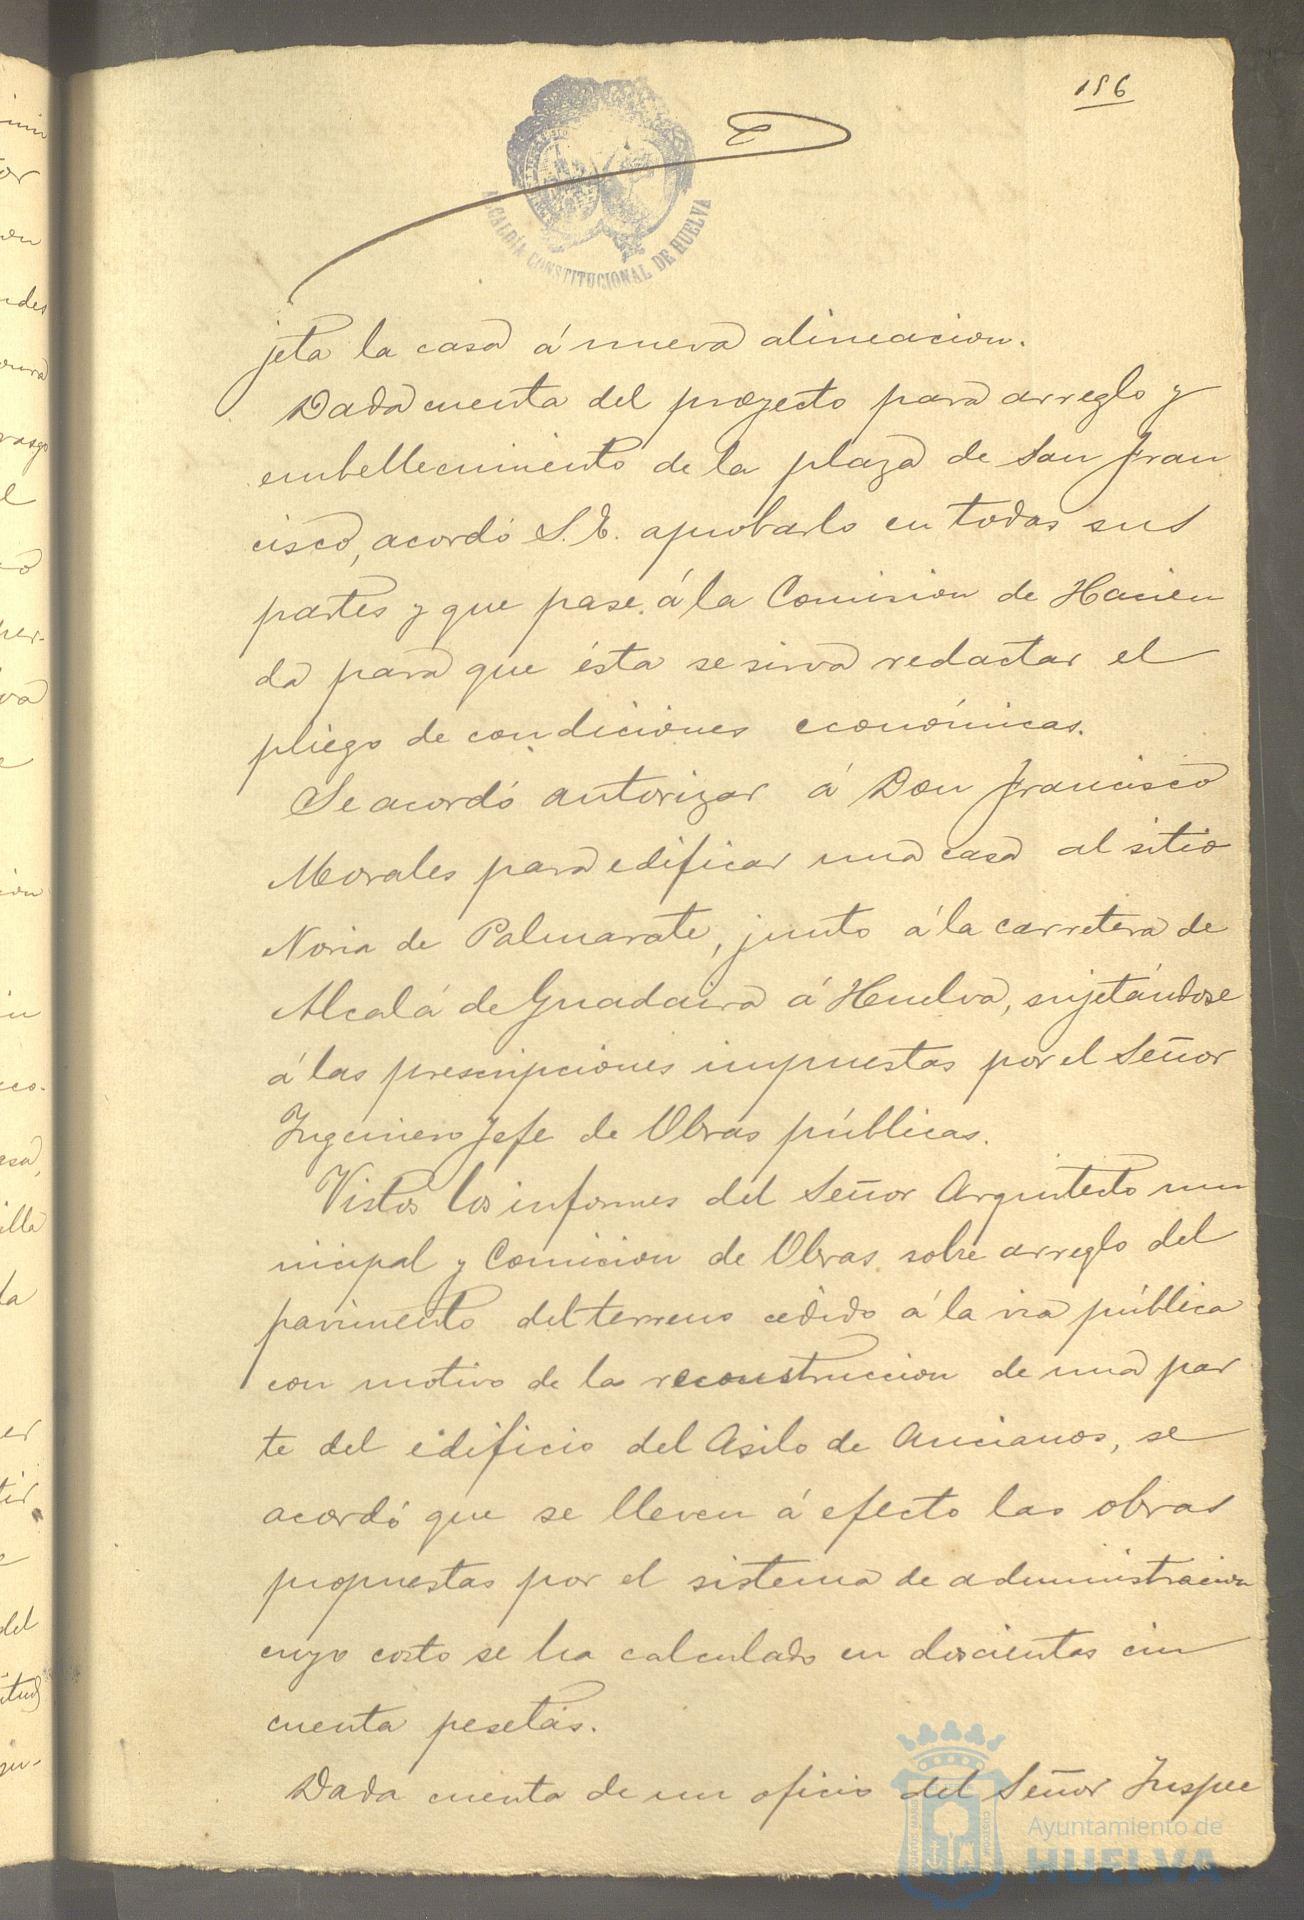 186
ALCALDÍA CONSTITUCIONAL DE HUELVA
jeta la casa á nueva alineacion.
Dada cuenta del proyecto para arreglo y
embellecimiento de la plaza de San Fran
cisco, acordó S.E. aprobarlo en todas sus
partes y que pase á la Comision de Hacien
da para que ésta se sirva redactar el
pliego de condiciones económicas.
Se acordó autorizar á Don Francisco
Morales para edificar una casa al sitio
Noria de Palmarate, junto á la carretera de
Alcalá de Guadaira á Huelva, sujetándose
á las prescripciones impuestas por el Señor
Ingeniero Jefe de Obras públicas.
Vistos los informes del Señor Arquitecto mu
nicipal y Comision de Obras sobre arreglo del
pavimento del terreno cedido á la via pública
con motivo de la reconstruccion de una par
te del edificio del Asilo de Ancianos, se
acordó que se lleven á efecto las obras
propuestas por el sistema de administracion
cuyo costo se ha calculado en doscientas cin
cuenta pesetas.
Dada cuenta de un oficio del Señor Inspec
Ayuntamiento de
HUELVA